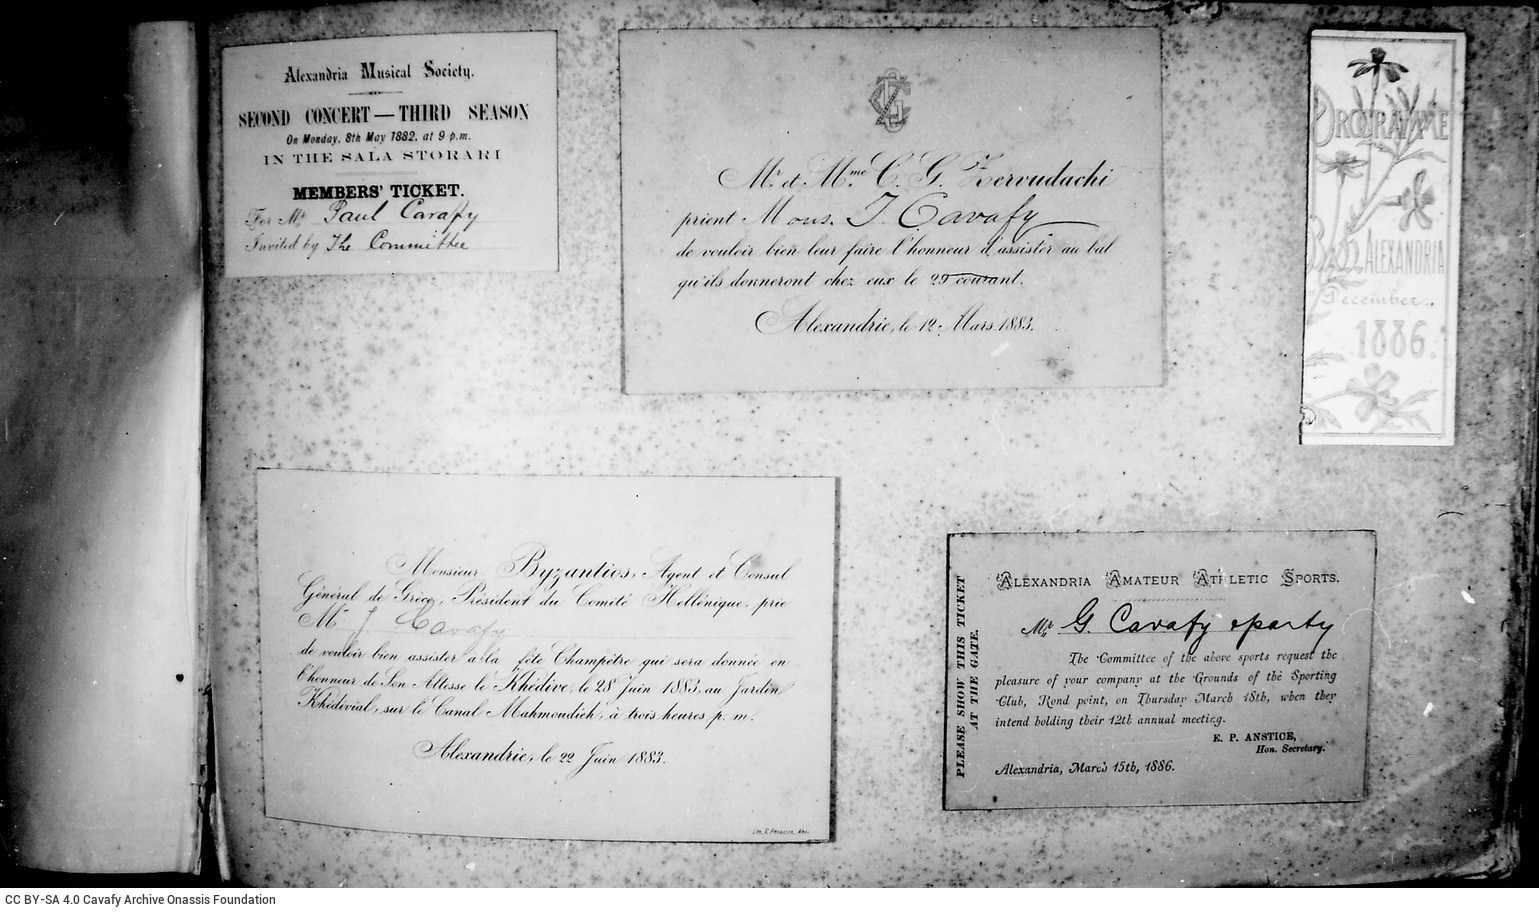 Alexandria Musical Society.
SECOND CONCERT — THIRD SEASON
On Monday, 8th May 1882, at 9 p.m.
IN THE SALA STORARI
MEMBERS' TICKET.
For Mr Paul Cavafy
Invited by The Committee
Mr. et Mme. C. G. Zervudachi
prient Mons. J. Cavafy
de vouloir bien leur faire l'honneur d'assister au bal
qu'ils donneront chez eux le 29 courant.
Alexandrie, le 12 Mars 1883.
PROGRAMME
ALEXANDRIA
December.
1886.
Monsieur Byzantios, Agent et Consul
Général de Grèce, Président du Comité Hellénique, prie
Mr J Cavafy
de vouloir bien assister à la fête Champêtre qui sera donnée en
l'honneur de Son Altesse le Khédive, le 28 Juin 1883, au Jardin
Khédivial, sur le Canal Mahmoudieh, à trois heures p. m.
Alexandrie, le 22 Juin 1883.
PLEASE SHOW THIS TICKET
AT THE GATE.
ALEXANDRIA AMATEUR ATHLETIC SPORTS.
Mr G. Cavafy & party
The Committee of the above sports request the
pleasure of your company at the Grounds of the Sporting
Club, Rond point, on Thursday March 18th, when they
intend holding their 12th annual meeting.
E. P. ANSTICE,
Hon. Secretary.
Alexandria, March 15th, 1886.
CC BY-SA 4.0 Cavafy Archive Onassis Foundation